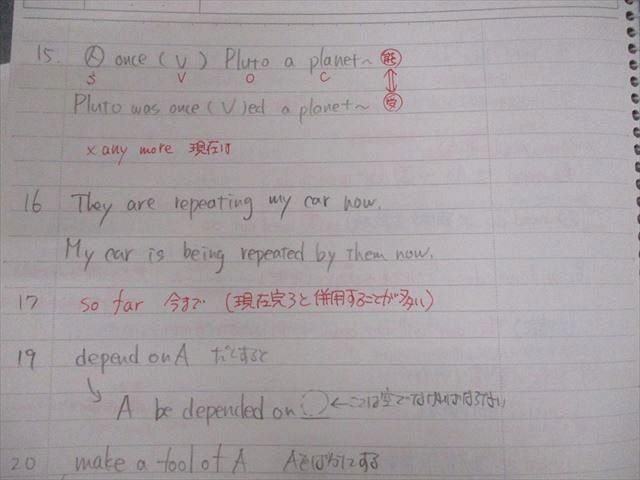 15. Ⓐ once (V) Pluto a planet~ 能
S V O C
Pluto was once (V)ed a planet~ 受
× any more 現在は
16 They are repeating my car now.
My car is being repeated by them now.
17 so far 今まで (現在完了と併用することが多い)
19 depend on A だとすると
A be depended on ← ここは空でなければならない
20 make a fool of A Aをばかにする